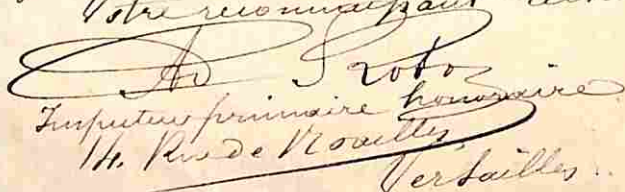 Votre reconnaissant
Ad
Inspecteur primaire honoraire
14. Rue de Noailles
Versailles.